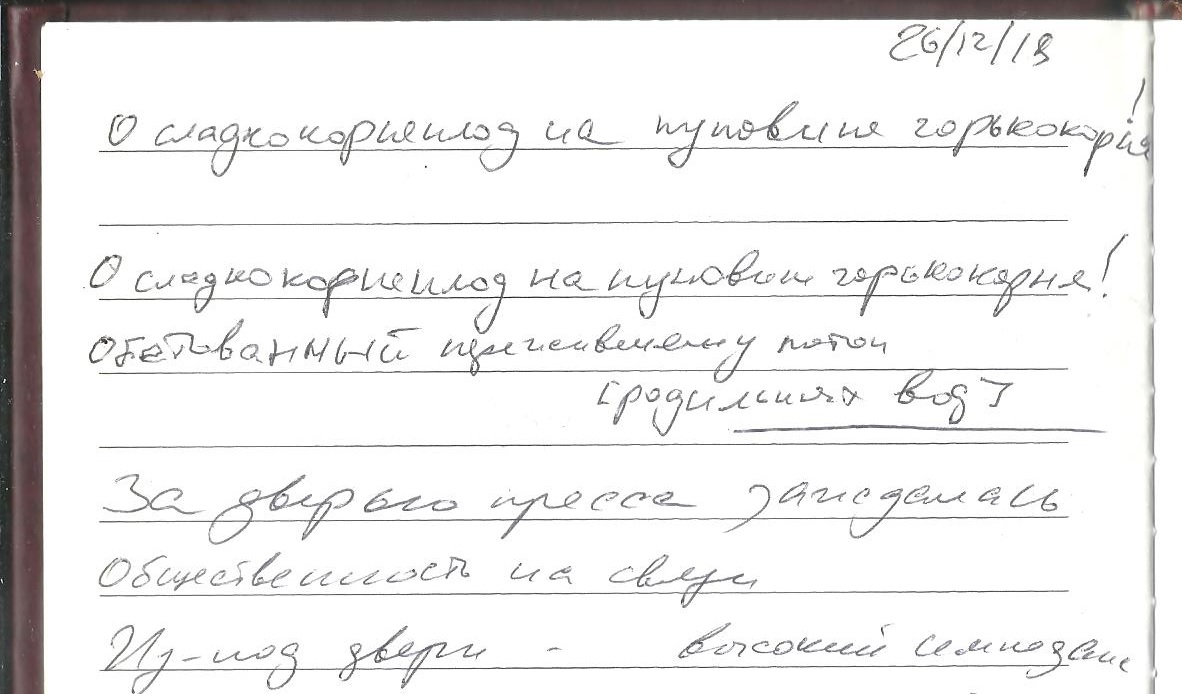 26/12/18
О сладкокорнеплод на пуповине горькокорня!
О сладкокорнеплод на пуповине горькокорня!
Обетованный пережившему потоп
[родильных вод]
За дверью пресса заждалась
Общественность на связи
Из-под двери - высокий